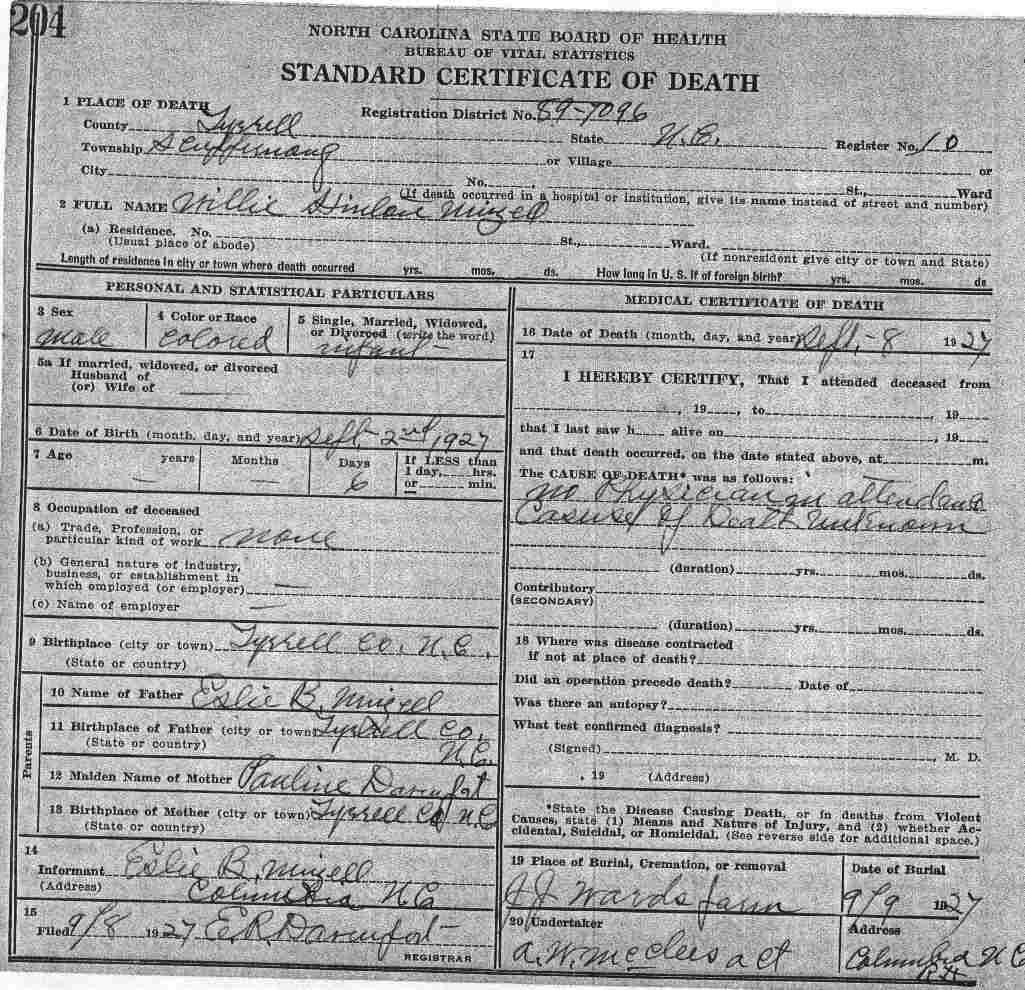 204
NORTH CAROLINA STATE BOARD OF HEALTH
BUREAU OF VITAL STATISTICS
STANDARD CERTIFICATE OF DEATH
1 PLACE OF DEATH
Registration District No. 89-7096
County Tyrrell State N.C. Register No. 10
Township Scuppernong or Village or
City No. St., Ward
(If death occurred in a hospital or institution, give its name instead of street and number)
2 FULL NAME Willie Hinton Mizell
(a) Residence, No. St., Ward.
(Usual place of abode) (If nonresident give city or town and State)
Length of residence in city or town where death occurred yrs. mos. ds. How long in U. S. if of foreign birth? yrs. mos. ds
PERSONAL AND STATISTICAL PARTICULARS
3 Sex
male
4 Color or Race
Colored
5 Single, Married, Widowed,
or Divorced (write the word)
infant
5a If married, widowed, or divorced
Husband of
(or) Wife of
6 Date of Birth (month, day, and year) Sept 2nd 1927
7 Age years Months Days If LESS than
1 day, hrs.
6 or min.
8 Occupation of deceased
(a) Trade, Profession, or
particular kind of work none
(b) General nature of industry,
business, or establishment in
which employed (or employer)
(c) Name of employer
9 Birthplace (city or town) Tyrrell Co. N.C.
(State or country)
Parents
10 Name of Father Eslie B. Mizell
11 Birthplace of Father (city or town) Tyrrell Co.
(State or country) N.Ca.
12 Maiden Name of Mother Pauline Davenport
13 Birthplace of Mother (city or town) Tyrrell Co N.C
(State or country)
14
Informant Eslie B. Mizell
(Address) Columbia N Ca
15
Filed 9/8 1927 E.R. Davenport
REGISTRAR
MEDICAL CERTIFICATE OF DEATH
16 Date of Death (month, day, and year) Sept, -8 1927
17
I HEREBY CERTIFY, That I attended deceased from
, 19 , to , 19
that I last saw h alive on , 19
and that death occurred, on the date stated above, at m.
The CAUSE OF DEATH* was as follows:
no Physician in attendance
Casuse of Death unknown
(duration) yrs. mos. ds.
Contributory
(SECONDARY)
(duration) yrs. mos. ds.
18 Where was disease contracted
if not at place of death?
Did an operation precede death? Date of
Was there an autopsy?
What test confirmed diagnosis?
(Signed) , M. D.
, 19 (Address)
*State the Disease Causing Death, or in deaths from Violent
Causes, state (1) Means and Nature of Injury, and (2) whether Ac-
cidental, Suicidal, or Homicidal. (See reverse side for additional space.)
19 Place of Burial, Cremation, or removal
J J Wards farm
Date of Burial
9/9 1927
20 Undertaker
A. W. McClees act
Address
Columbia N C